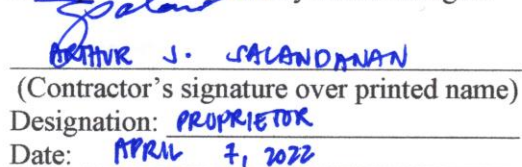 ARTHUR J. SALANDANAN
(Contractor's signature over printed name)
Designation: PROPRIETOR
Date: APRIL 7, 2022